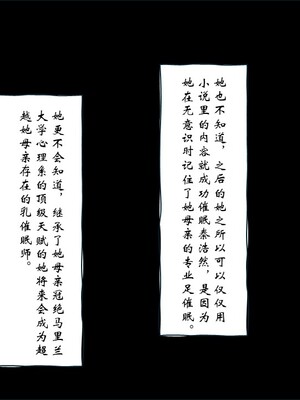 她也不知道，之后的她之所以可以仅仅用
小说里的内容就成功催眠秦浩然，是因为
她在无意识时记住了她母亲的专业足催眠。
她更不会知道，继承了她母亲冠绝马里兰
大学心理系的顶级天赋的她将来会成为超
越她母亲存在的乳催眠师。